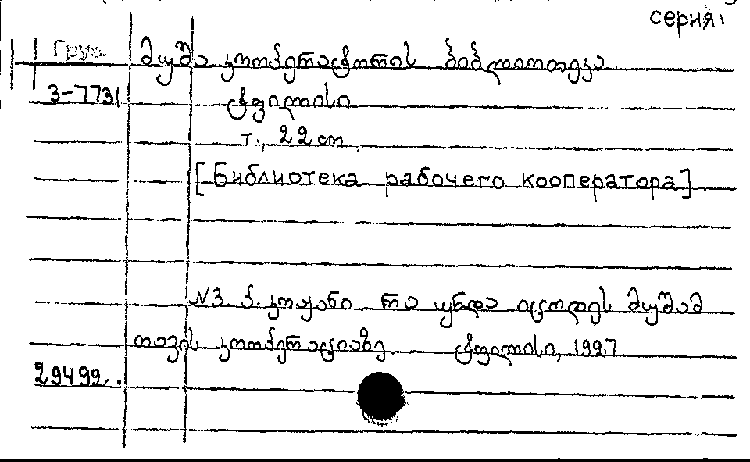 серия:
Груз. მუშა კოოპერატორის ბიბლიოთეკა
3-7731 ტფილისი
т., 22 cm
[Библиотека рабочего кооператора]
№3. პ. კოჟანი რა უნდა იცოდეს მუშამ
თავის კოოპერაციაზე ტფილისი, 1927
29499..